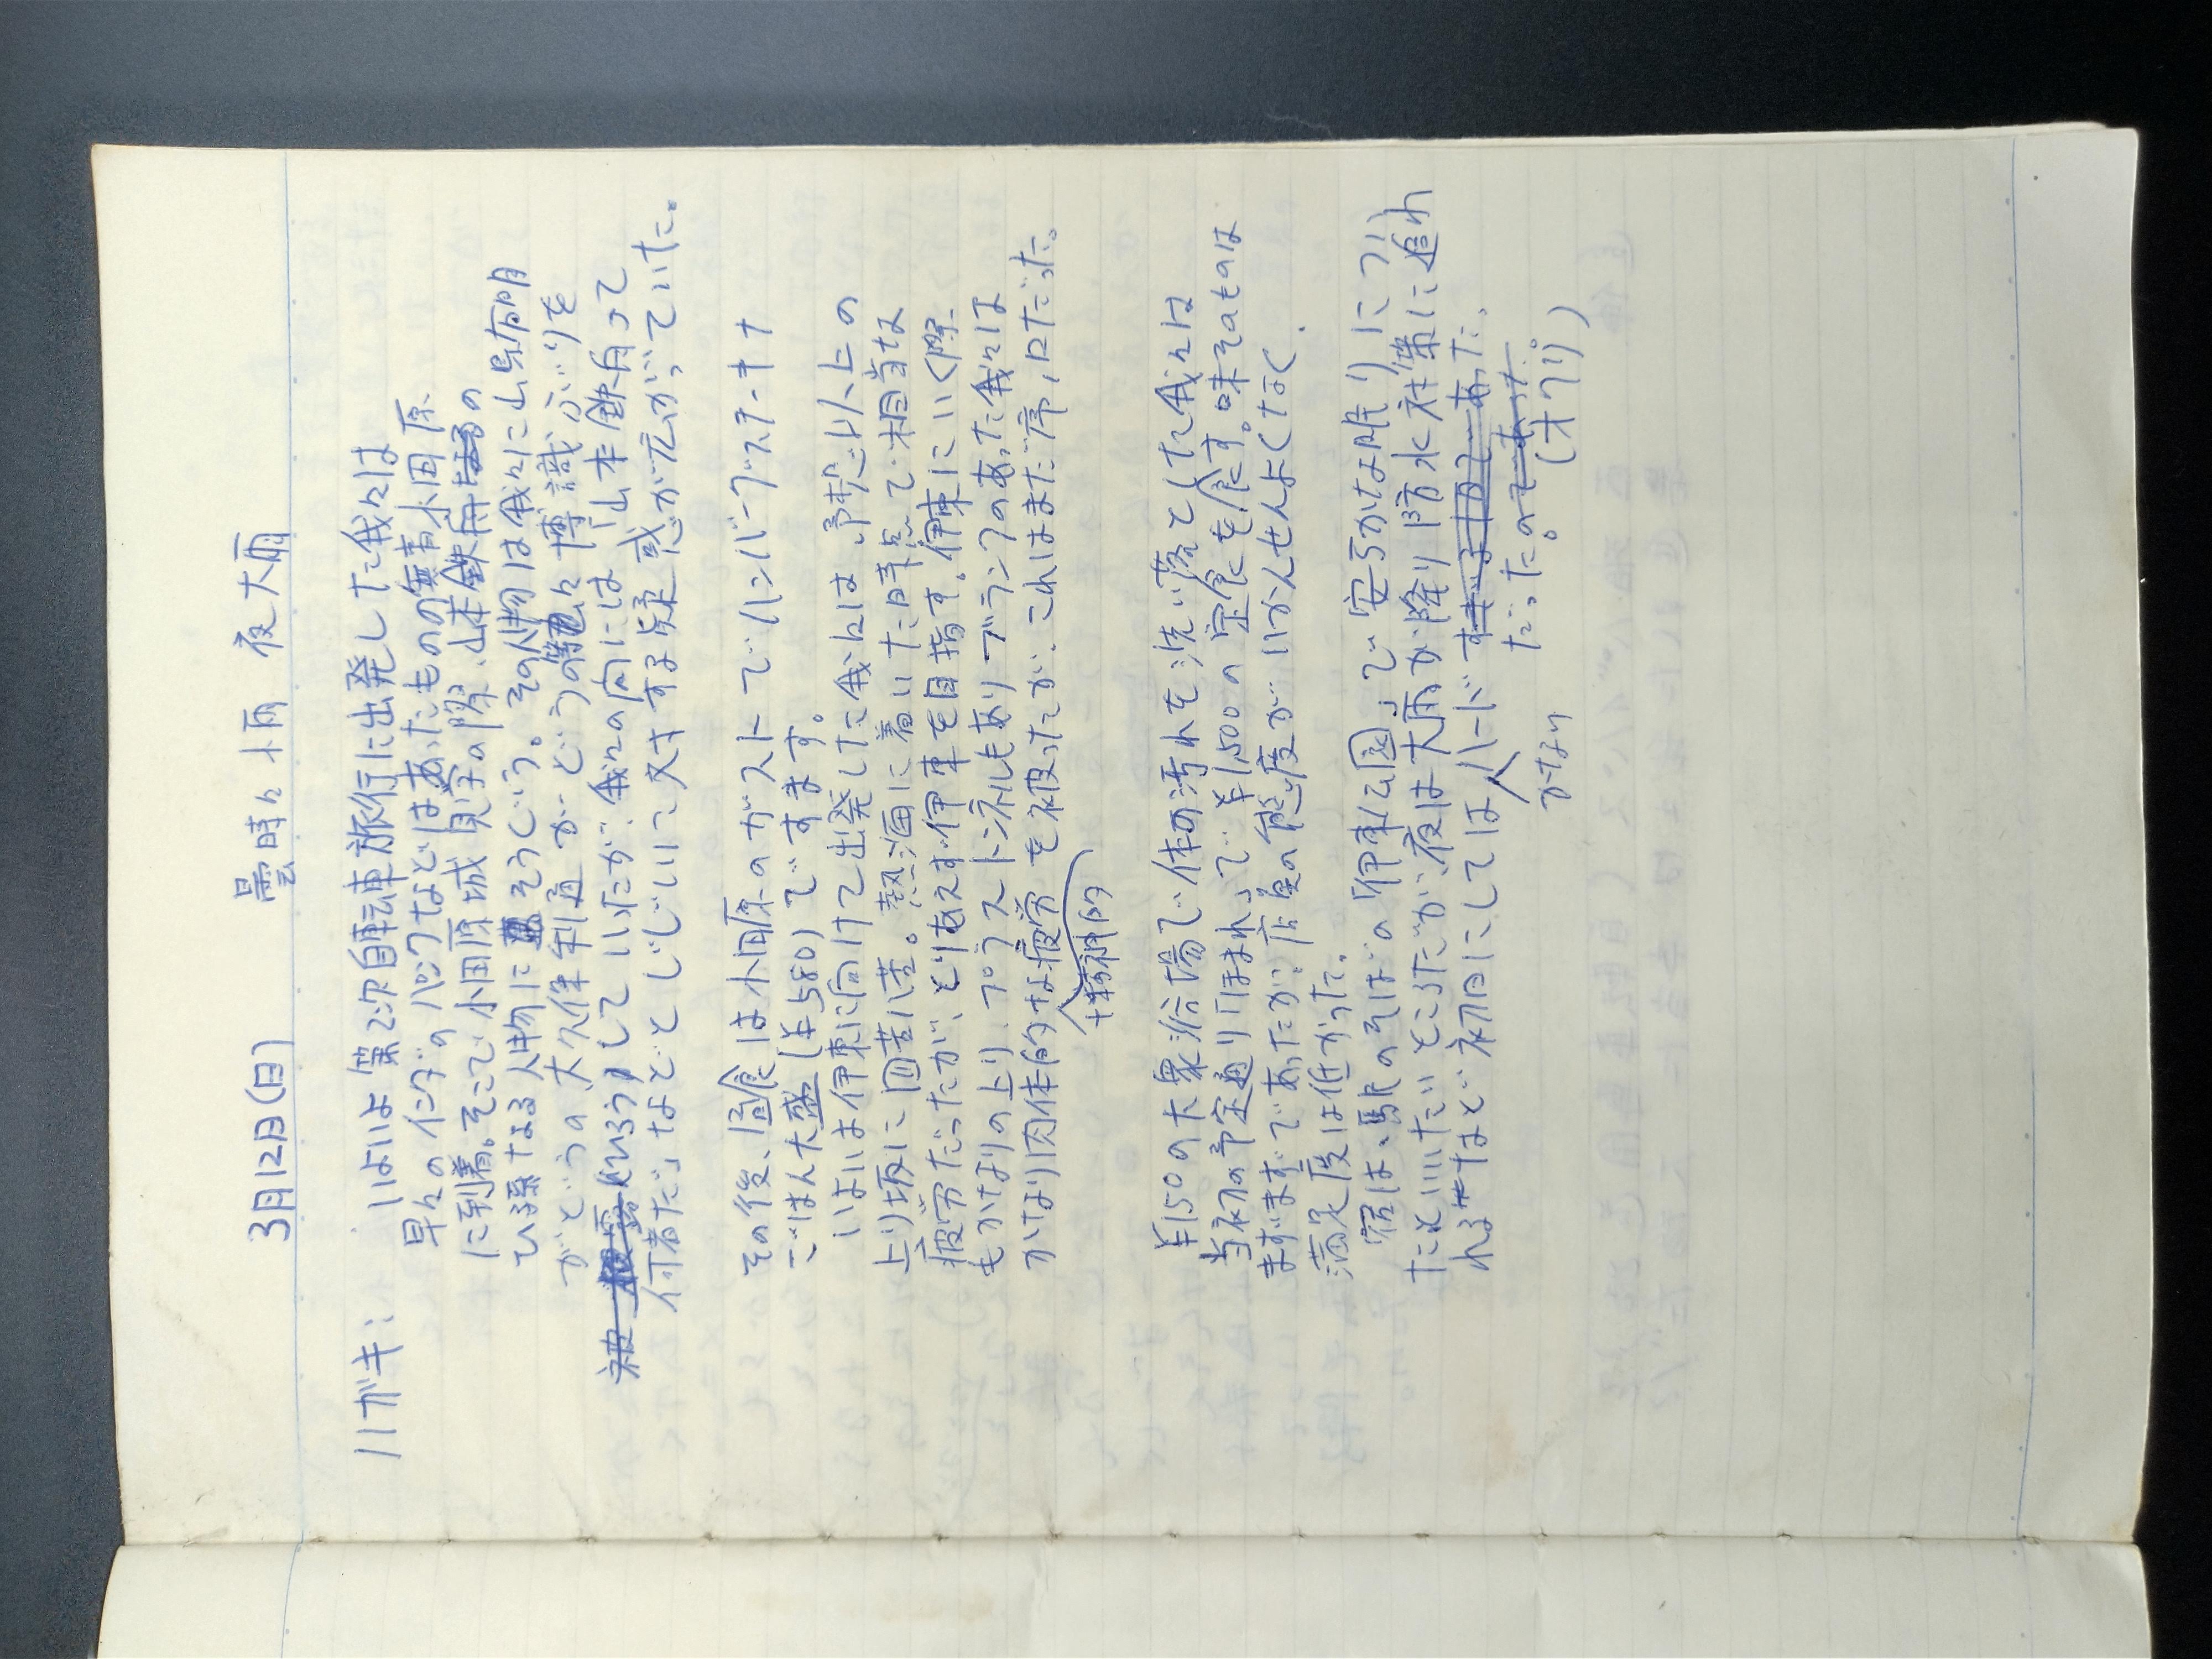 3月12日(日) 曇時々小雨 夜大雨
ハガキ: いよいよ第2次自転車旅行に出発した我々は
早々のインダのパンクなどはあったものの無事小田原
に到着。そこで小田原城見学の際、山本鉄舟の
ひ孫なる人物に そうぐう。その人物は我々に山県有朋
がどうの大久保利通がどうの等色々博識ぶりを
ひろうしていたが、我々の内には「山本鉄舟って
何者だ」などとしじいに対する疑惑が広がっていた。
その後、昼食は小田原のガストでハンバーグステーキ+
ごはん大盛(¥580)ですます。
いよいよ伊東に向けて出発した我々には、予想以上の
上り坂に四苦八苦。熱海に着いた時点で相当な
疲労だったが、とりあえず伊東を目指す。伊東にいく際
もかなりの上り、プラストンネルもありブランクのあった我々は
かなり肉体的な疲労を被ったが、これはまだ序ノ口だった。
+精神的
¥150の大衆浴場で体の汚れを洗い落とした我々は
当初の予定通り「ほまれ」で¥1,500の定食を食す。味そのものは
まずまずであったが、店員の態度がいかんせんよくなく
満足度は低かった。
宿は、駅のそばの「伊東公園」で安らかな眠りについ
たといいたいところだが、夜は大雨が降り防水対策に追わ
れるなど初日にしてはハードすぎ
かなり
だったのであった。
(オワリ)